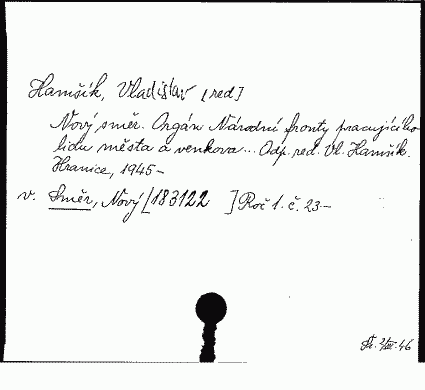 Hamšík, Vladislav [red]
Nový směr. Orgán Národní fronty pracujícího
lidu města a venkova... Odp. red. Vl. Hamšík.
Hranice, 1945-
v. Směr, Nový [183122 ] Roč 1. č. 23-
46